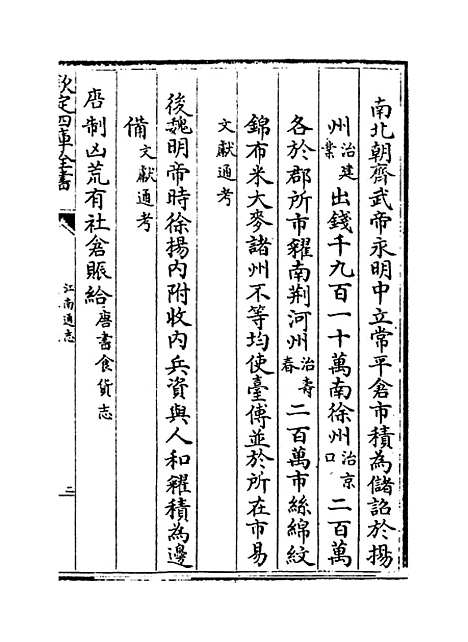 南北朝齊武帝永明中立常平倉市積為儲詔於揚
州治建業出錢千九百一十萬南徐州治京口二百萬
各於郡所市糴南荆河州治壽春二百萬市絲綿紋
錦布米大麥諸州不等均使臺傳並於所在市易
文獻通考
後魏明帝時徐揚內附收內兵資與人和糴積為邊
備文獻通考
唐制凶荒有社倉賑給唐書食貨志
欽定四庫全書
江南通志
二